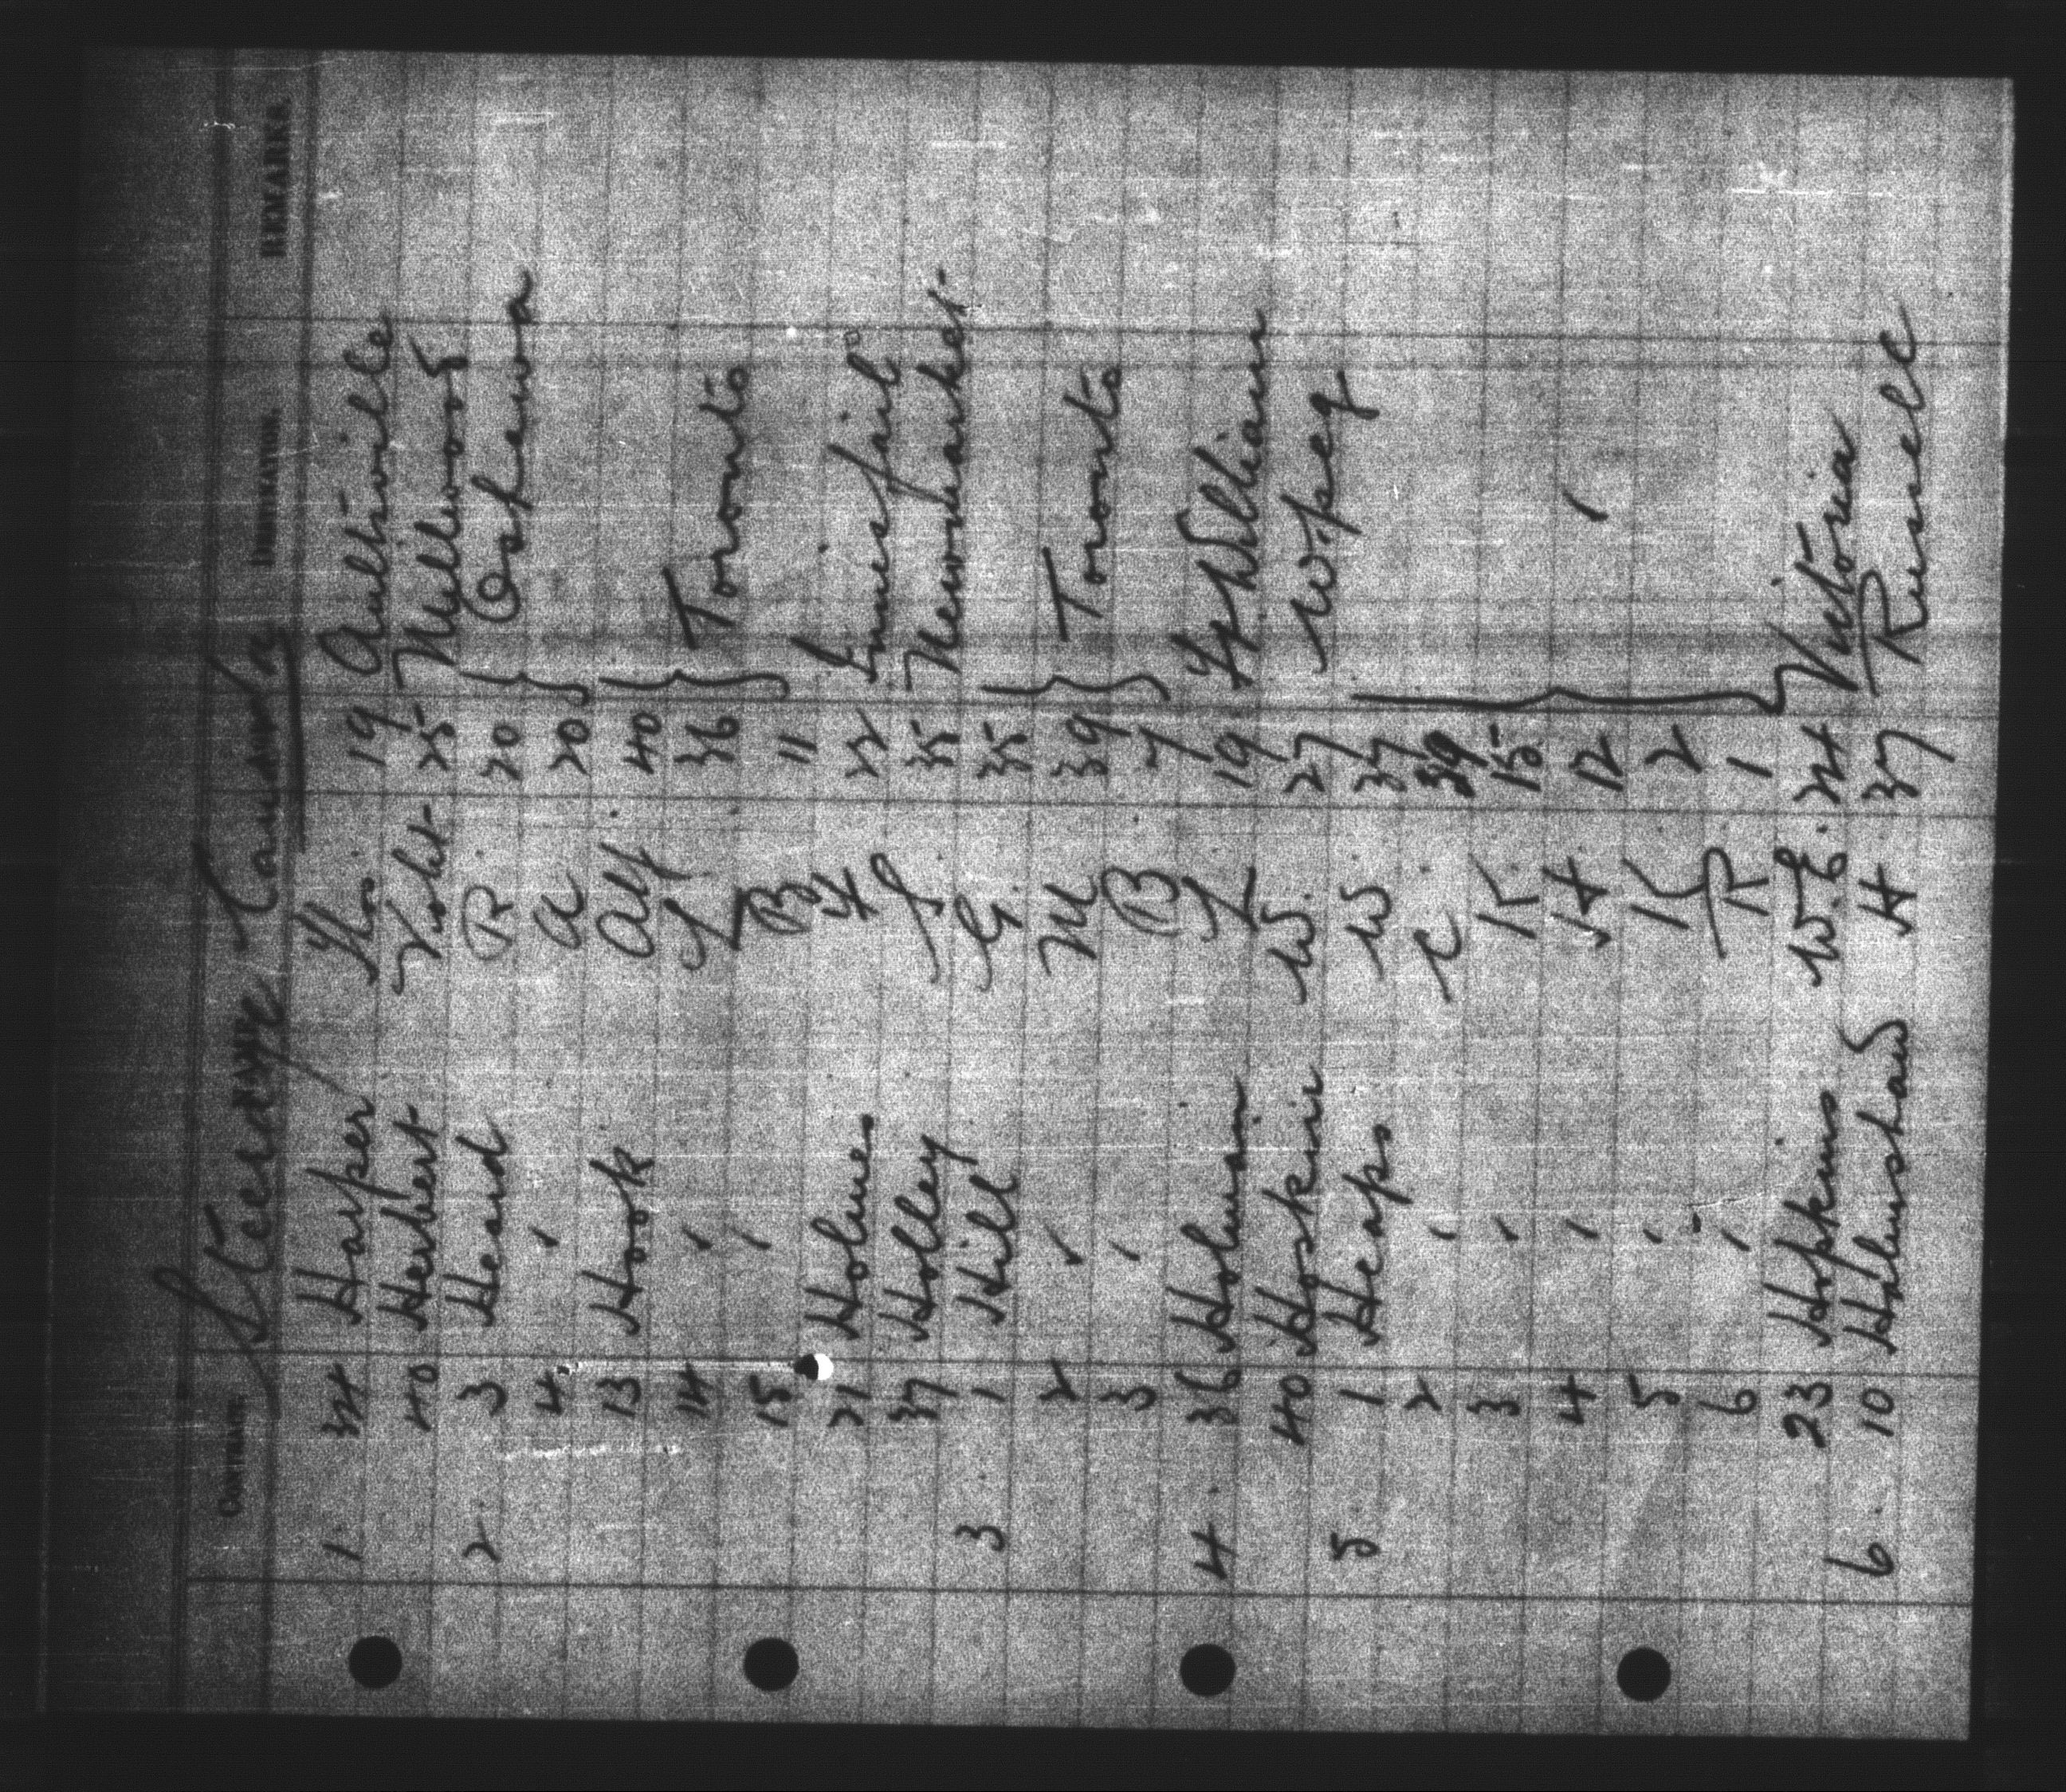 Steerage Canada
CONTRACT. NAME DESTINATION. REMARKS.
1 34 Harper Tho 19 Aultsville
40 Herbert Robt 25 Millwood
2 3 Heard R 20 Oshawa
4 " A 20
13 Hook Alf 40
14 " 36 Toronto
15 " B 11
21 Holmes H 22 Innisfail
37 Holley J 35 Newmarket
3 1 Hill G. 35
2 " M 39 Toronto
3 " B 7
4 36 Holman J 19 Ft William
40 Hoskin W. 27 Wpeg
5 1 Heaps W 37
2 " C 39
3 " K 15
4 " H 12 "
5 " K 2
6 " R 1
23 Hopkins W.E. 24 Victoria
6 10 Helmshaw H 37 Russell